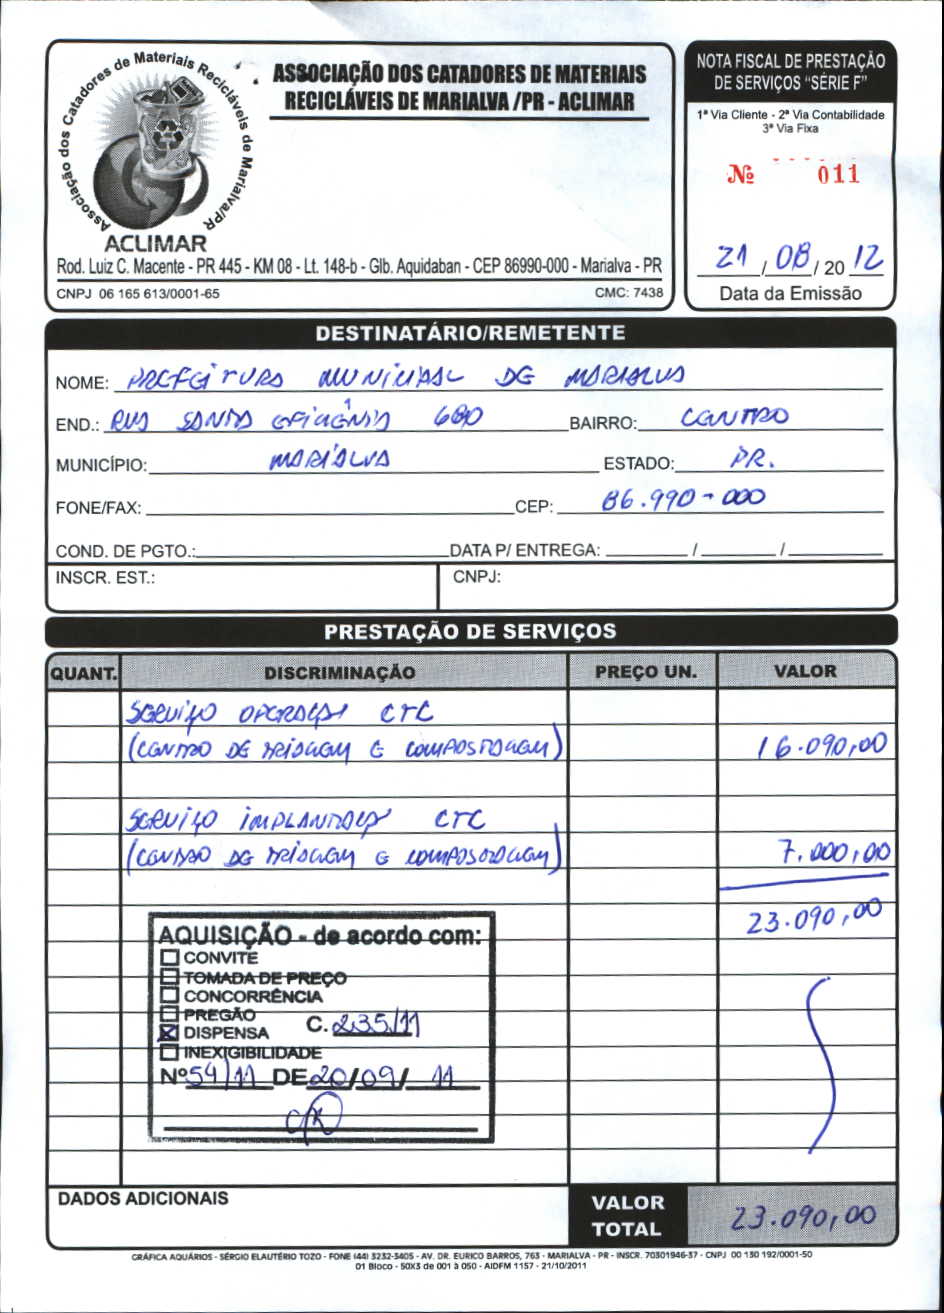 Associação dos Catadores de Materiais Recicláveis de Marialva/PR
ACLIMAR
ASSOCIAÇÃO DOS CATADORES DE MATERIAIS
RECICLÁVEIS DE MARIALVA /PR - ACLIMAR
Rod. Luiz C. Macente - PR 445 - KM 08 - Lt. 148-b - Glb. Aquidaban - CEP 86990-000 - Marialva - PR
CNPJ 06 165 613/0001-65 CMC: 7438
NOTA FISCAL DE PRESTAÇÃO
DE SERVIÇOS "SÉRIE F"
1ª Via Cliente - 2ª Via Contabilidade
3ª Via Fixa
Nº 011
21/08/2012
Data da Emissão
DESTINATÁRIO/REMETENTE
NOME: PREFEITURA MUNICIPAL DE MARIALVA
END.: RUA SANTA EFIGÊNIA 680 BAIRRO: CENTRO
MUNICÍPIO: MARIALVA ESTADO: PR.
FONE/FAX: CEP: 86.990-000
COND. DE PGTO.: DATA P/ ENTREGA: / /
INSCR. EST.: CNPJ:
PRESTAÇÃO DE SERVIÇOS
QUANT. DISCRIMINAÇÃO PREÇO UN. VALOR
SERVIÇO OPERAÇÃO CTC
(CENTRO DE TRIAGEM E COMPOSTAGEM) 16.090,00
SERVIÇO IMPLANTAÇÃO CTC
(CENTRO DE TRIAGEM E COMPOSTAGEM) 7.000,00
23.090,00
AQUISIÇÃO - de acordo com:
CONVITE
TOMADA DE PREÇO
CONCORRÊNCIA
PREGÃO
DISPENSA C. 235/11
INEXIGIBILIDADE
Nº 54/11 DE 20/09/11
DADOS ADICIONAIS
VALOR TOTAL 23.090,00
GRÁFICA AQUÁRIOS - SÉRGIO ELAUTÉRIO TOZO - FONE (44) 3232-3405 - AV. DR. EURICO BARROS, 763 - MARIALVA - PR - INSCR. 70301946-37 - CNPJ 00 130 192/0001-50
01 Bloco - 50X3 de 001 à 050 - AIDFM 1157 - 21/10/2011